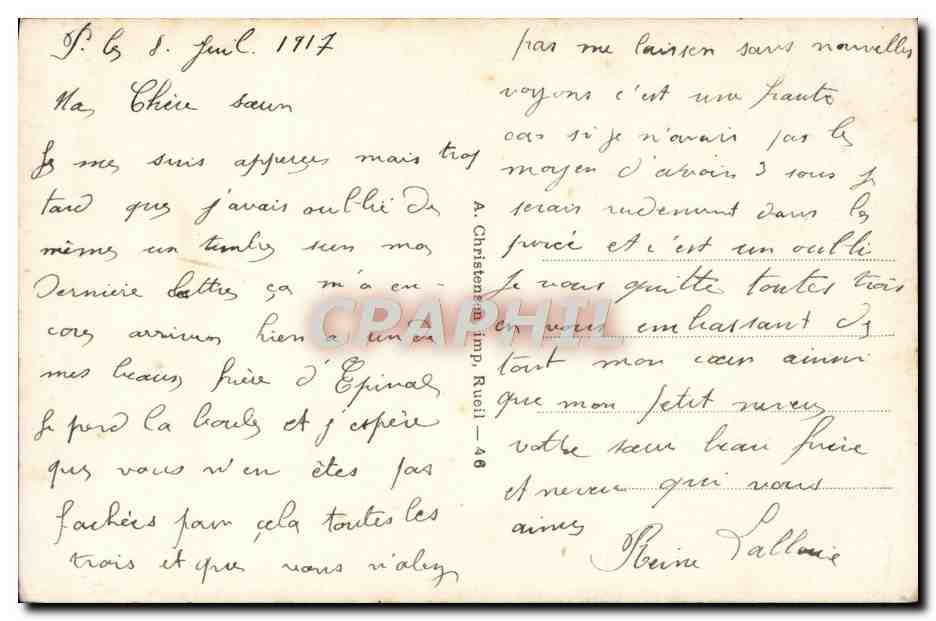 P. le 8. Juil. 1917
Ma Chère sœur
Je me suis apperçes mais trop
tard que j'avais oublié de
mêmes un timbre sur ma
Dernière lettre ça m'a en-
core arriver hier à un de
mes beaux frère d'Epinal
Je perd la boule et j'espère
que vous n'en êtes pas
fachées pour çela toutes les
trois et que vous n'alez
pas me laisser sans nouvelles
voyons c'est une faute
car si je n'avais pas les
moyen d'avoir 3 sous je
serais rudement dans la
purée et c'est un oubli
Je vous quitte toutes trois
en vous embrassant de
tout mon cœur ainsi
que mon petit neveu
votre sœur beau frère
et neveu qui vous
aimes
Reine Lallouie
A. Christensen, imp, Rueil — 46
CPAPHIL